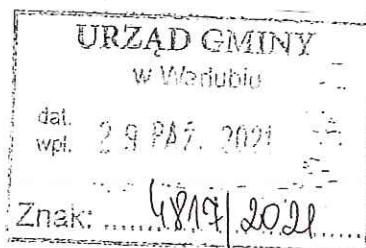 URZĄD GMINY
w Warlubiu
dat. wpł. 29 PAŹ. 2021
Znak: 4817/2021